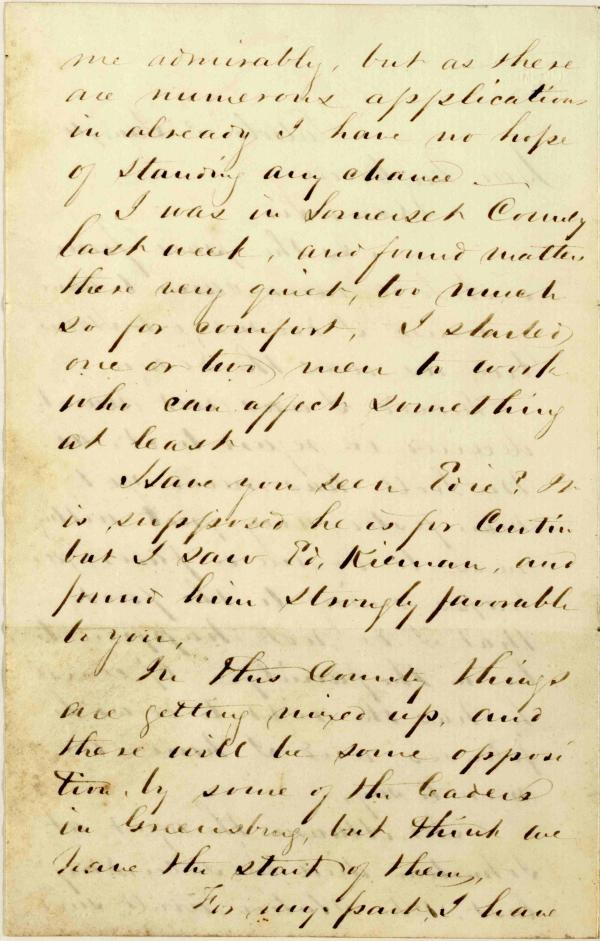 me admirably, but as there
are numerous applications
in already I have no hope
of standing any chance
I was in Somerset County
last week, and found matters
there very quiet, too much
so for comfort, I started
one or two men to work
who can affect something
at least
Have you seen Edie? It
is supposed he is for Curtin
but I saw Ed, Kiernan, and
found him strongly favorable
to you,
In this County things
are getting mixed up, and
there will be some opposi
tion by some of the leaders
in Greensburg, but think we
have the start of them,
For my part, I have